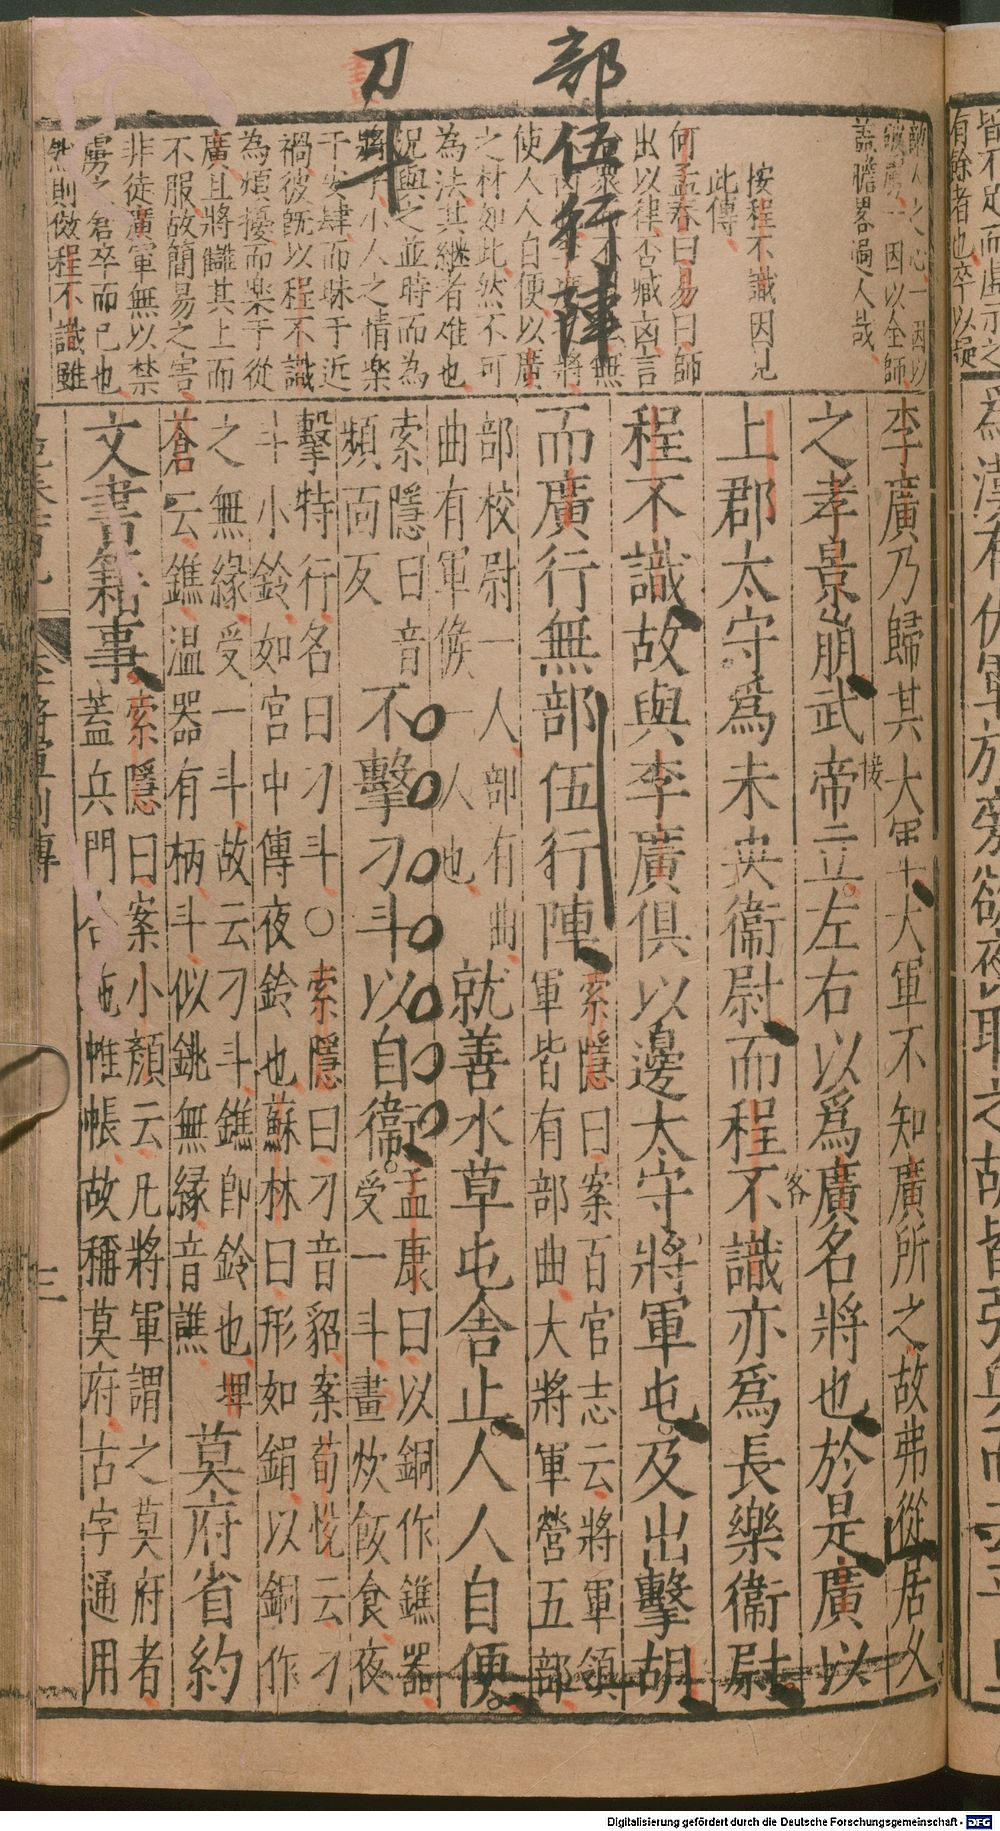 部伍行陣
刀斗
敵人之心一因以
疑虜一因以全師
蓋膽畧過人哉
按程不識因見
此傳
何孟春曰易曰師
出以律否臧凶言
使人人自便以廣
之材如此然不可
為法其継者难也
況與之並時而為
將乎小人之情樂
于安肆而昧于近
禍彼既以程不識
為煩擾而樂于從
廣且將讎其上而
不服故簡易之害
非徒廣軍無以禁
虜之倉卒而已也
然則倣程不識雖
李廣乃歸其大軍大軍不知廣所之故弗從居久
之孝景崩武帝立左右以爲廣名將也於是廣以
上郡太守爲未央衞尉而程不識亦爲長樂衞尉
程不識故與李廣俱以邊太守將軍屯及出擊胡
而廣行無部伍行陣
索隱曰案百官志云將軍領
軍皆有部曲大將軍營五部
部校尉一人部有曲
曲有軍候一人也
就善水草屯舍止人人自便
索隱曰音
頻面反
不擊刁斗以自衞
孟康曰以銅作鐎器
受一斗晝炊飯食夜
擊特行名曰刁斗〇索隱曰刁音貂案荀悅云刁
斗小鈴如宮中傳夜鈴也蘇林曰形如鋗以銅作
之無緣受一斗故云刁斗鐎卽鈴也埤
蒼云鐎温器有柄斗似銚無緣音譙
莫府省約
文書籍事
索隱曰案小顔云凡將軍謂之莫府者
蓋兵門合施帷帳故稱莫府古字通用
李將軍列傳
三
接
客
Digitalisierung gefördert durch die Deutsche Forschungsgemeinschaft - DFG